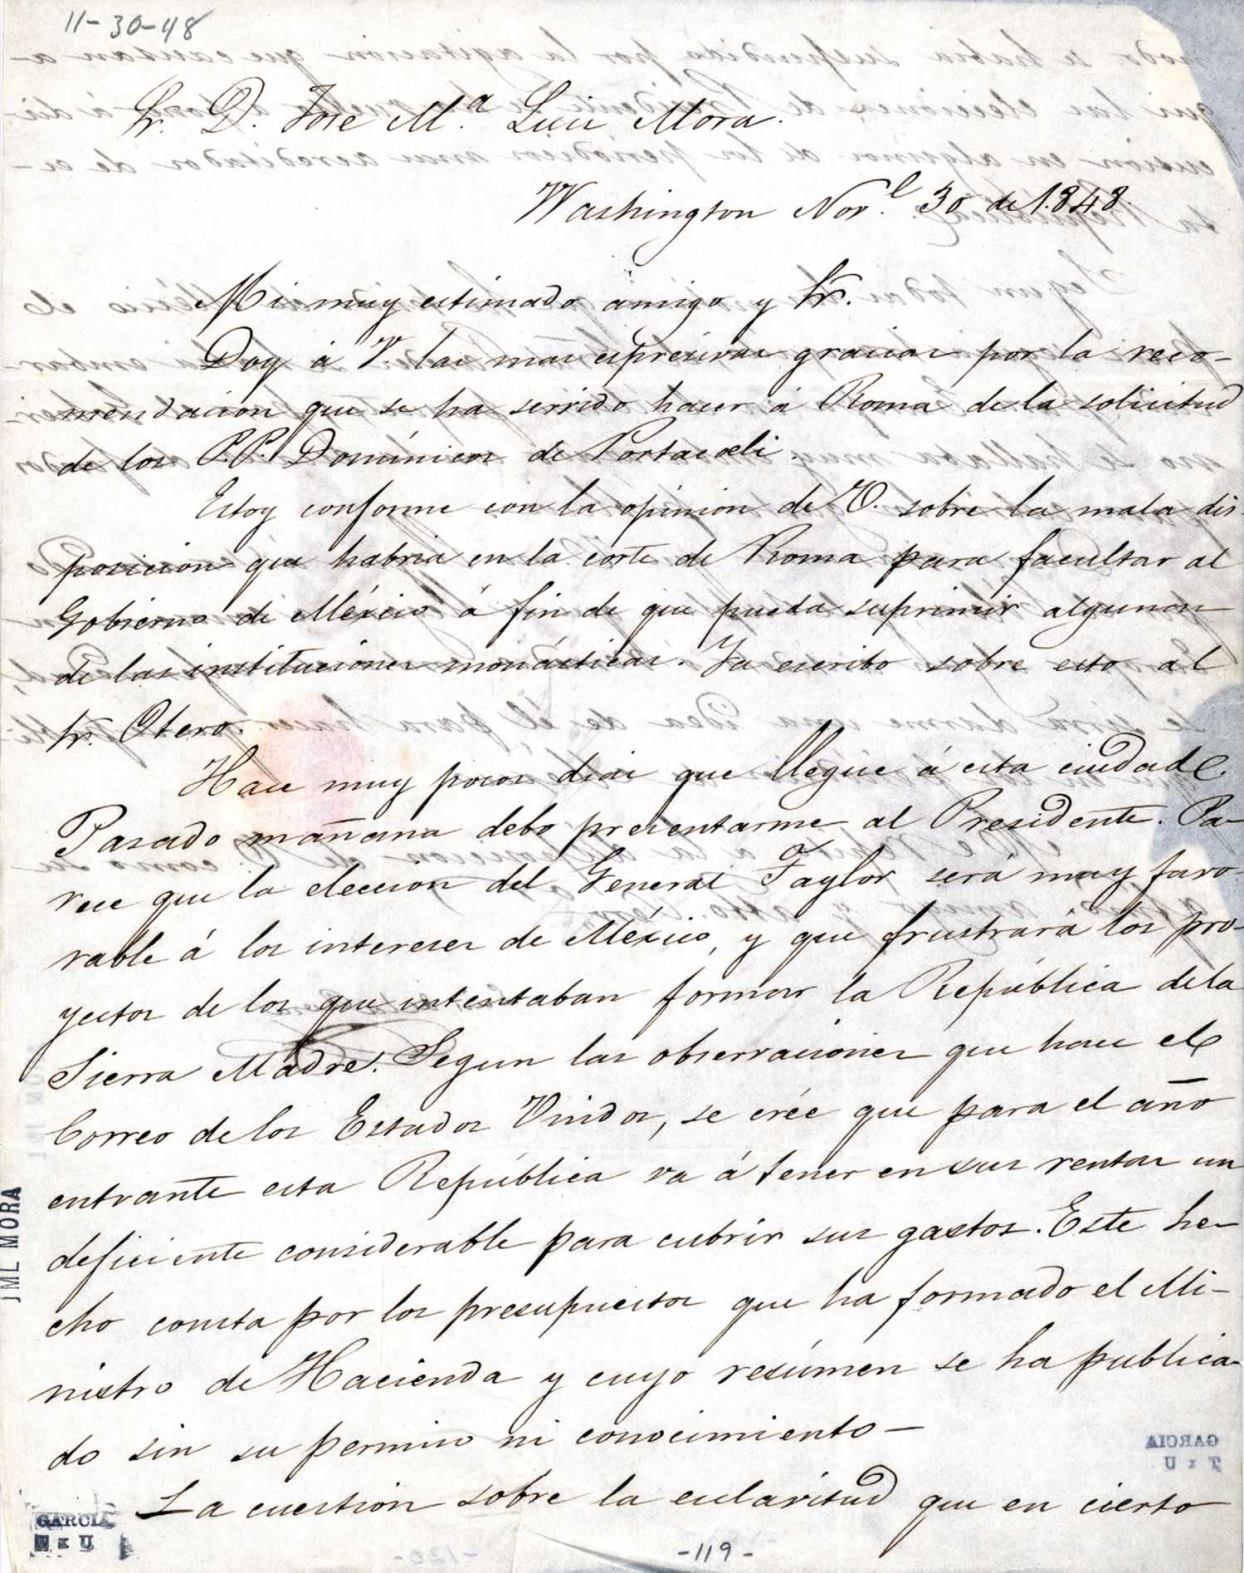 11-30-48
Sr. D. José M.ª Luis Mora.
Washington Nov.e 30 de 1848.
Mi muy estimado amigo y Sr.
Doy á V. las mas espresivas gracias por la reco-
mendacion que se ha servido hacer á Roma de la solicitud
de los P.P. Domínicos de Portacœli.
Estoy conforme con la opinion de V. sobre la mala dis
posicion que habria en la corte de Roma para facultar al
Gobierno de México á fin de que pueda suprimir algunas
de las instituciones monásticas. Ya escribo sobre esto al
Sr. Otero.
Hace muy pocos dias que llegué á esta ciudad.
Pasado mañana debo presentarme al Presidente. Pa-
rece que la eleccion del General Taylor será muy favo-
rable á los intereses de México, y que frustrará los pro-
yectos de los que intentaban formar la República de la
Sierra Madre. Segun las observaciones que hace el
Correo de los Estados Unidos, se crée que para el año
entrante esta República va á tener en sus rentas un
deficiente considerable para cubrir sus gastos. Este he-
cho consta por los presupuestos que ha formado el Mi-
nistro de Hacienda y cuyo resúmen se ha publica-
do sin su permiso ni conocimiento—
La cuestion sobre la esclavitud que en cierto
JML MORA
GARCIA
GARCIA
T x U
-119-